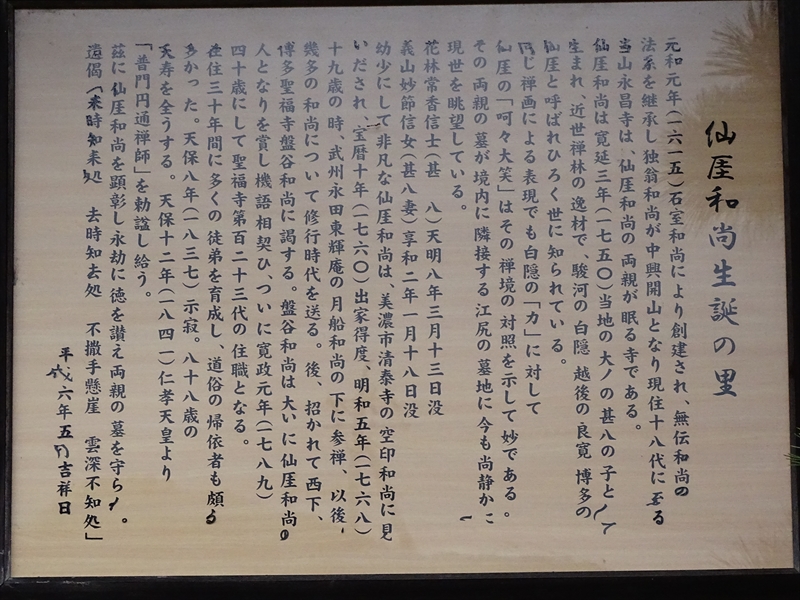 仙厓和尚生誕の里
元和元年(一六一五)石室和尚により創建され、無伝和尚の
法系を継承し独翁和尚が中興開山となり現住十八代に至る
当山永昌寺は、仙厓和尚の両親が眠る寺である。
仙厓和尚は寛延三年(一七五〇)当地の大ノの甚八の子として
生まれ、近世禅林の逸材で、駿河の白隠 越後の良寛 博多の
仙厓と呼ばれひろく世に知られている。
同じ禅画による表現でも白隠の「力」に対して
仙厓の「呵々大笑」はその禅境の対照を示して妙である。
その両親の墓が境内に隣接する江尻の墓地に今も尚静かに
現世を眺望している。
花林常香信士(甚 八)天明八年三月十三日没
義山妙節信女(甚八妻)享和二年一月十八日没
幼少にして非凡な仙厓和尚は、美濃市清泰寺の空印和尚に見
いだされ、宝暦十年(一七六〇)出家得度、明和五年(一七六八)
十九歳の時、武州永田東輝庵の月船和尚の下に参禅、以後、
幾多の和尚について修行時代を送る。後、招かれて西下、
博多聖福寺盤谷和尚に謁する。盤谷和尚は大いに仙厓和尚の
人となりを賞し機語相契ひ、ついに寛政元年(一七八九)
四十歳にして聖福寺第百二十三代の住職となる。
在住三十年間に多くの徒弟を育成し、道俗の帰依者も頗る
多かった。天保八年(一八三七)示寂。八十八歳の
天寿を全うする。天保十二年(一八四一)仁孝天皇より
「普門円通禅師」を勅諡し給う。
茲に仙厓和尚を顕彰し永劫に徳を讃え両親の墓を守らん。
遺偈「来時知来処 去時知去処 不撒手懸崖 雲深不知処」
平成六年五月吉祥日